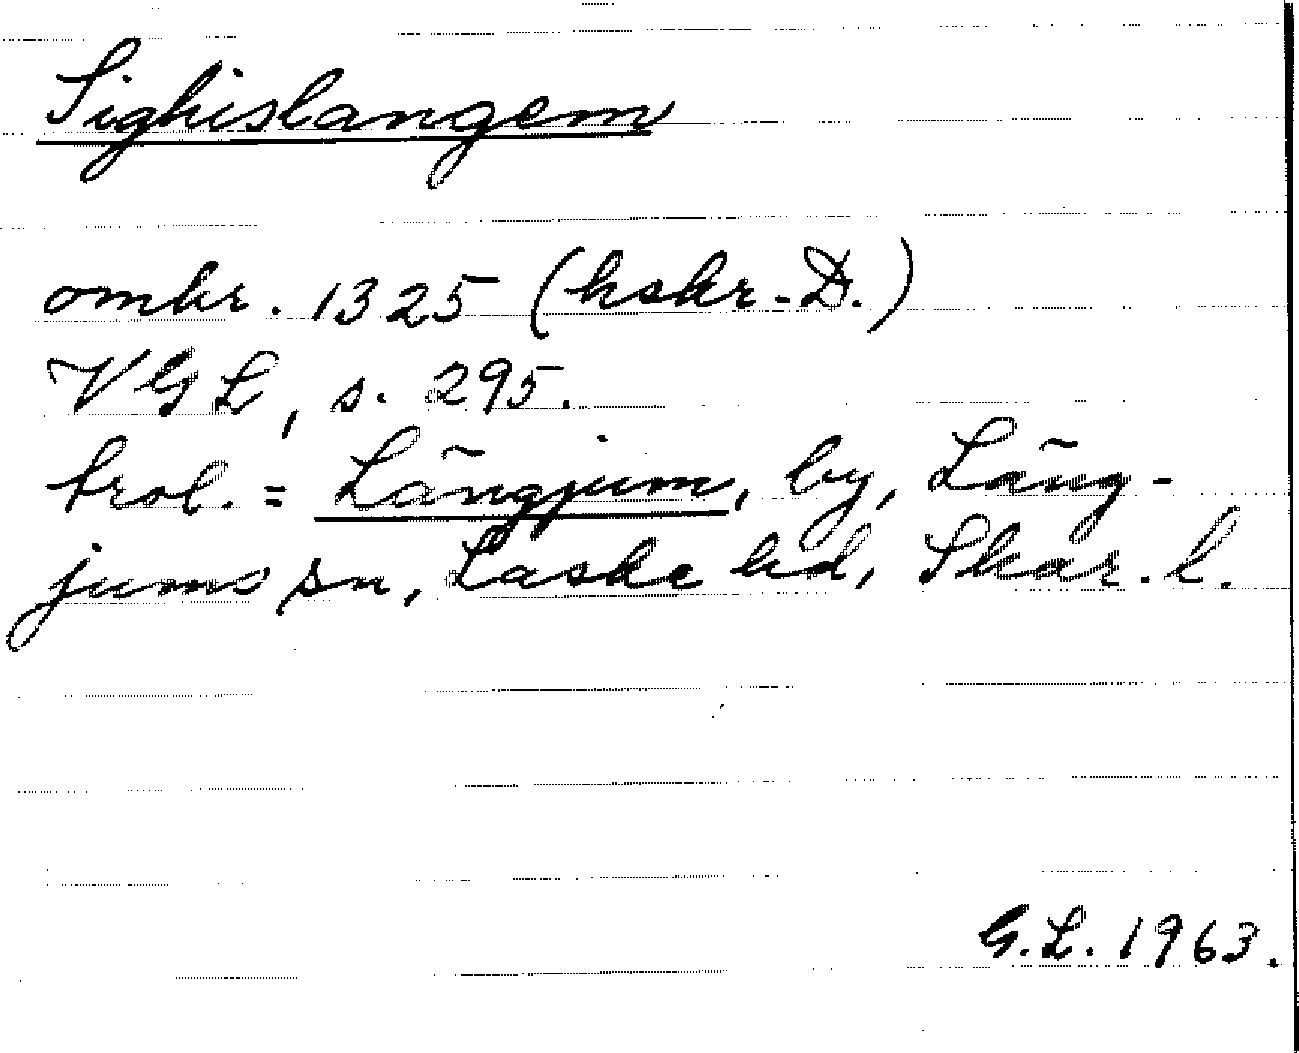 Sighislangem
omkr. 1325 (hskr. D.)
VGL, s. 295.
trol. = Långjum, by, Lång-
jums sn, Laske hd, Skar. l.
G.L. 1963.